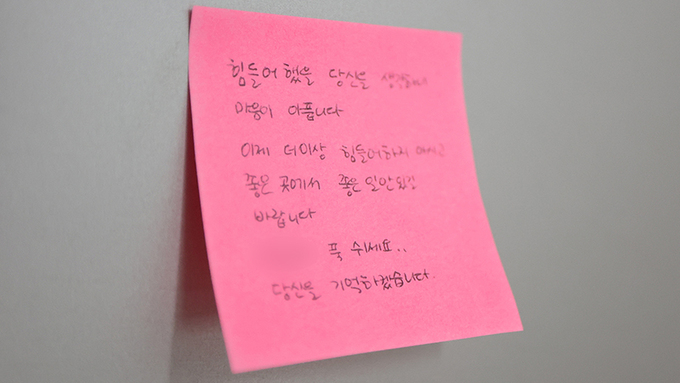 힘들어 했을 당신을 생각하니
마음이 아픕니다
이제 더이상 힘들어하지 마시고
좋은 곳에서 좋은 일만 되길
바랍니다
푹 쉬세요..
당신을 기억하겠습니다.